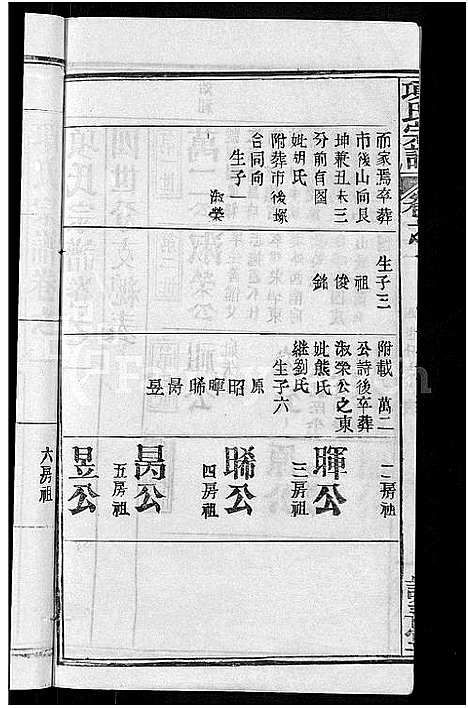 項氏宗譜
而家焉卒葬
市後山向艮
坤兼丑未三
分前有圖
妣胡氏
附葬市後塜
合同向
生子一
淑榮
圖
生子三
祖
俊
銘
附載萬二
公詩後卒葬
淑榮公之東
妣熊氏
繼劉氏
生子六
原
昭
暉
晞
昺
昱
二房祖
暉公
三房祖
晞公
四房祖
昺公
五房祖
昱公
六房祖